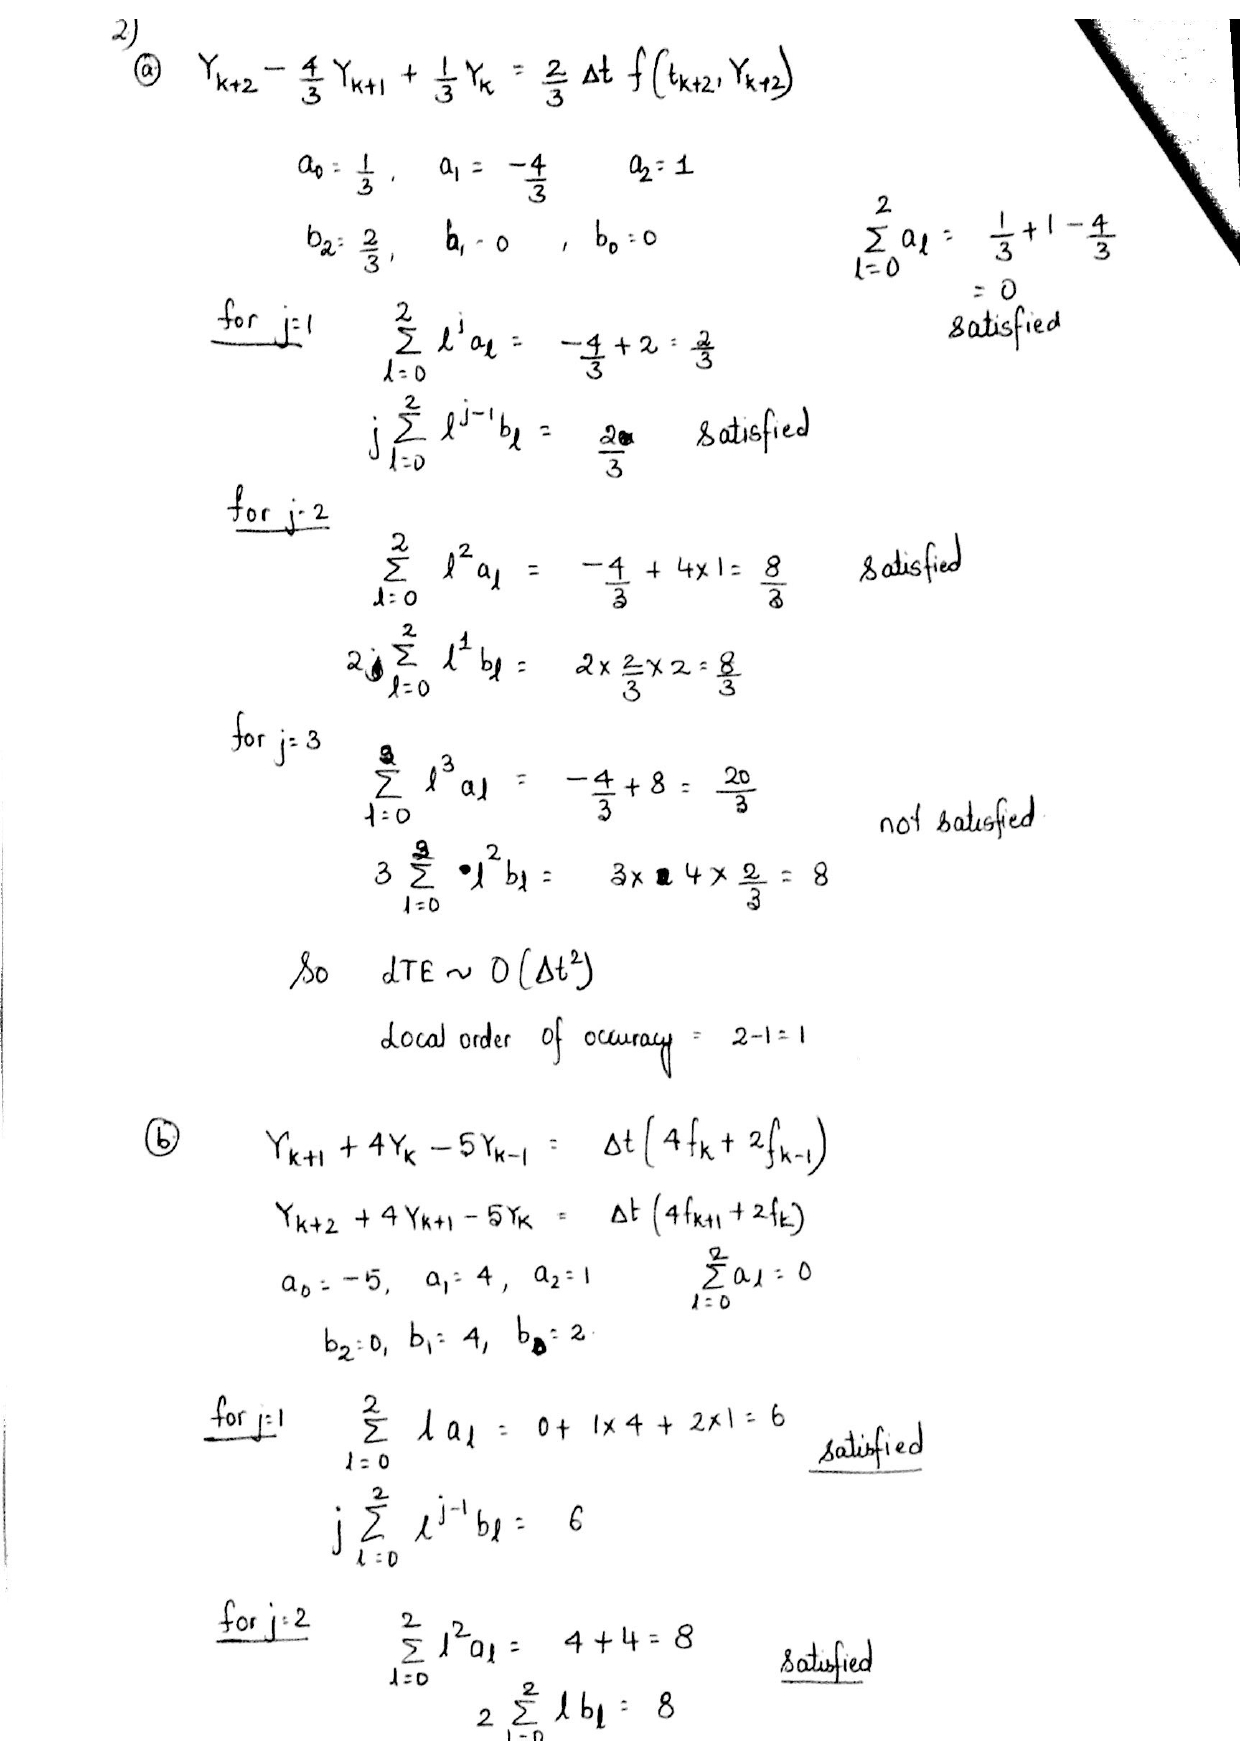 2)
(a) Y_{k+2} - 4/3 Y_{k+1} + 1/3 Y_k = 2/3 Δt f(t_{k+2}, Y_{k+2})
a_0 = 1/3, a_1 = -4/3 a_2 = 1
b_2 = 2/3, b_1 = 0, b_0 = 0
Σ_{l=0}^{2} a_l = 1/3 + 1 - 4/3
= 0
satisfied
for j=1 Σ_{l=0}^{2} l^j a_l = -4/3 + 2 = 2/3
j Σ_{l=0}^{2} l^{j-1} b_l = 2/3 satisfied
for j=2
Σ_{l=0}^{2} l^2 a_l = -4/3 + 4×1 = 8/3 satisfied
2 Σ_{l=0}^{2} l^1 b_l = 2 × 2/3 × 2 = 8/3
for j=3
Σ_{l=0}^{2} l^3 a_l = -4/3 + 8 = 20/3
not satisfied
3 Σ_{l=0}^{2} l^2 b_l = 3 × 4 × 2/3 = 8
So LTE ~ O(Δt^2)
Local order of accuracy = 2-1 = 1
(b) Y_{k+1} + 4Y_k - 5Y_{k-1} = Δt (4f_k + 2f_{k-1})
Y_{k+2} + 4Y_{k+1} - 5Y_k = Δt (4f_{k+1} + 2f_k)
a_0 = -5, a_1 = 4, a_2 = 1 Σ_{l=0}^{2} a_l = 0
b_2 = 0, b_1 = 4, b_0 = 2
for j=1 Σ_{l=0}^{2} l a_l = 0 + 1×4 + 2×1 = 6
satisfied
j Σ_{l=0}^{2} l^{j-1} b_l = 6
for j=2 Σ_{l=0}^{2} l^2 a_l = 4+4 = 8
satisfied
2 Σ_{l=0}^{2} l b_l = 8